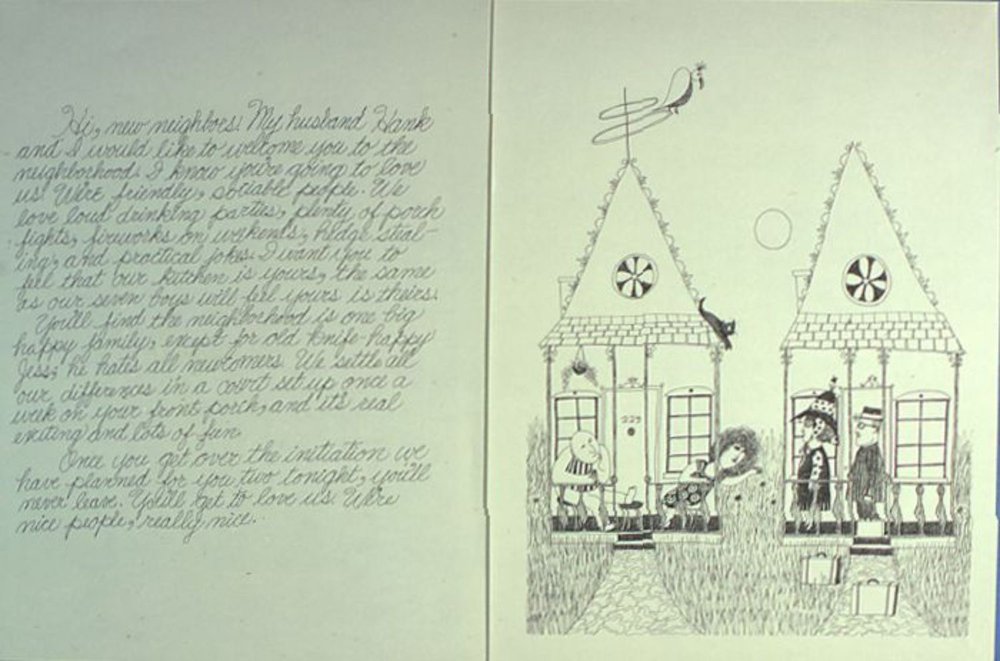 Hi, new neighbors! My husband Hank
and I would like to welcome you to the
neighborhood. I know you're going to love
us! We're friendly, sociable people. We
love loud drinking parties, plenty of porch
fights, fireworks on weekends, hedge steal-
ing, and practical jokes. I want you to
feel that our kitchen is yours, the same
as our seven boys will feel yours is theirs.
You'll find the neighborhood is one big
happy family, except for old knife-happy
Jess; he hates all newcomers. We settle all
our differences in a court set up once a
week on your front porch, and it's real
exciting and lots of fun.
Once you get over the initiation we
have planned for you two tonight, you'll
never leave. You'll get to love us. We're
nice people, really nice.